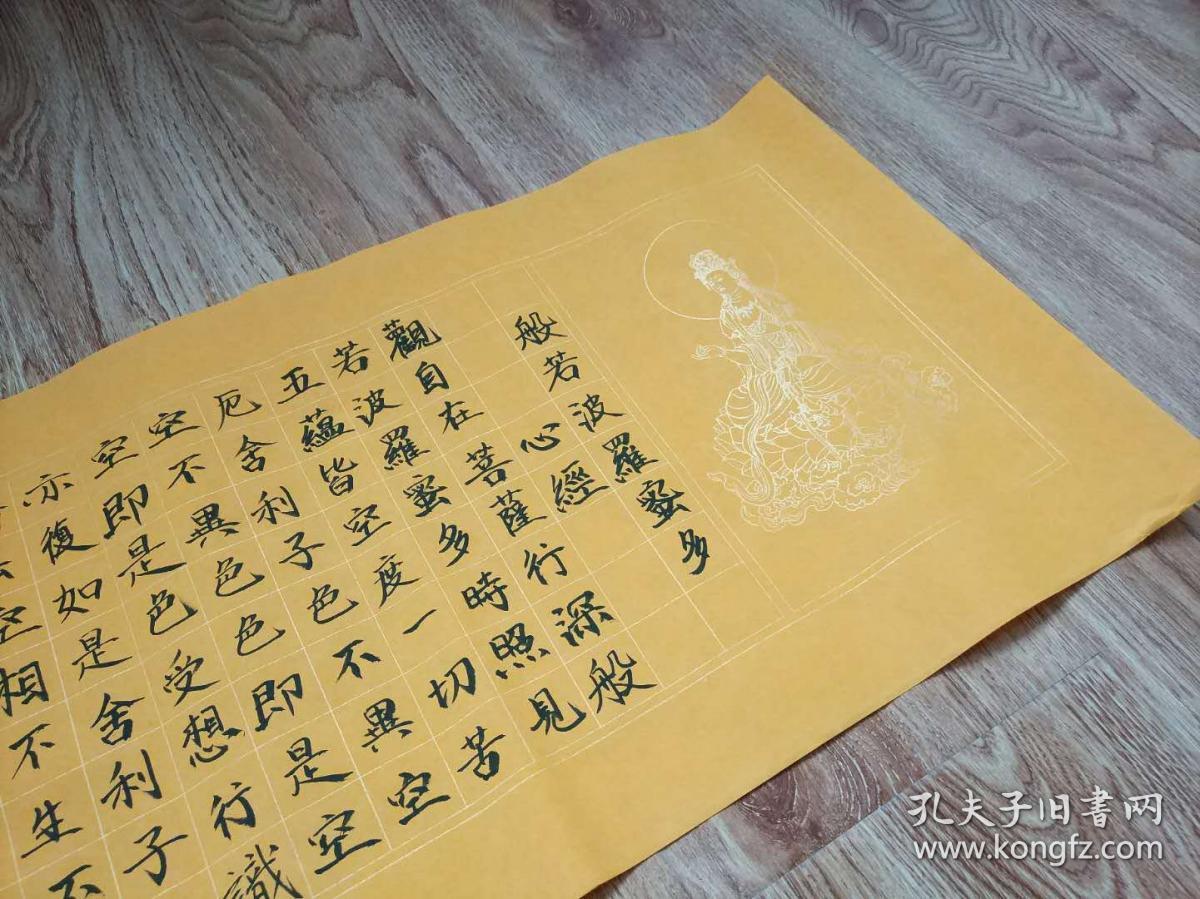 般若波羅蜜多
心經
觀自在菩薩行深般
若波羅蜜多時照見
五蘊皆空度一切苦
厄舍利子色不異空
空不異色色即是空
空即是色受想行識
亦復如是舍利子
空相不生不
孔夫子旧書网
www.kongfz.com